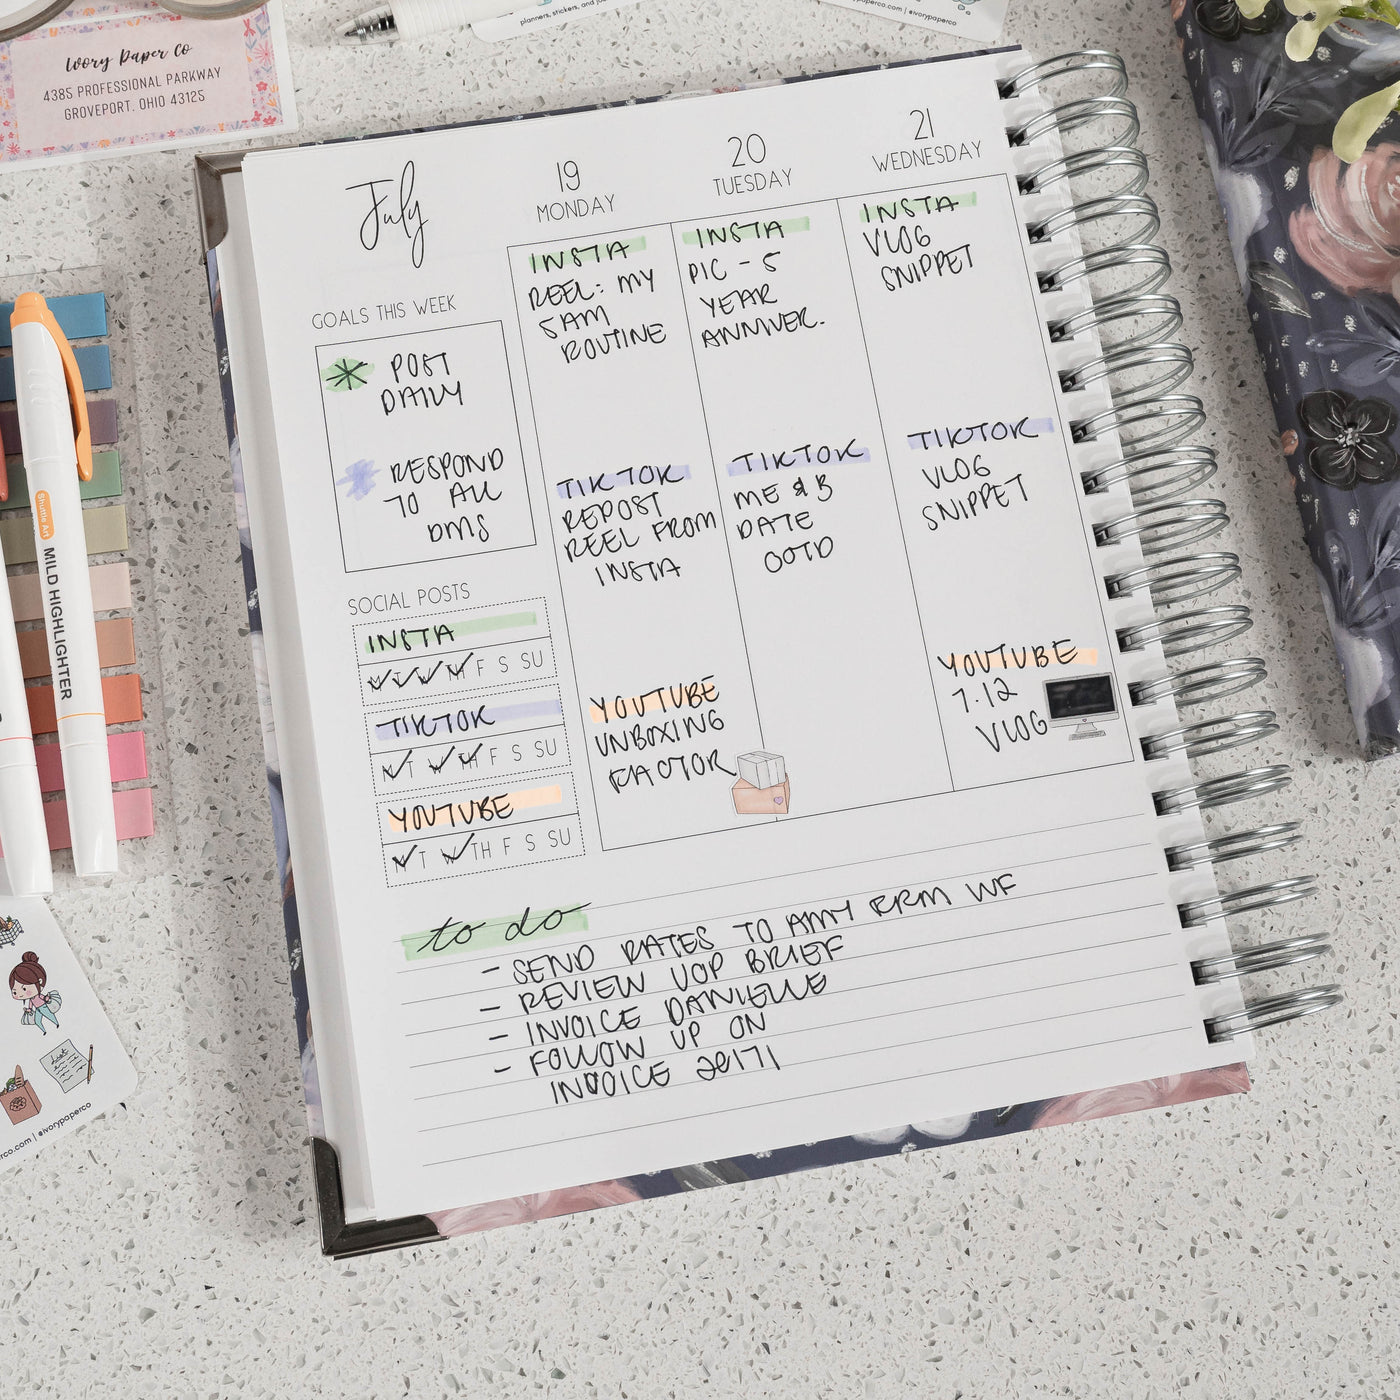 planners, stickers, and jou
.com | @ivorypaperco
Ivory Paper Co
4385 PROFESSIONAL PARKWAY
GROVEPORT, OHIO 43125
July
19
MONDAY
20
TUESDAY
21
WEDNESDAY
INSTA
REEL: MY
5AM
ROUTINE
INSTA
PIC - 5
YEAR
ANNIVER.
INSTA
VLOG
SNIPPET
GOALS THIS WEEK
POST
DAILY
RESPOND
TO ALL
DMS
TIKTOK
REPOST
REEL FROM
INSTA
TIKTOK
ME & B
DATE
OOTD
TIKTOK
VLOG
SNIPPET
SOCIAL POSTS
INSTA
M T W TH F S SU
TIKTOK
M T W TH F S SU
YOUTUBE
M T W TH F S SU
YOUTUBE
UNBOXING
YOUTUBE
7.12
VLOG
to do
- SEND RATES TO AMY RRM WF
- REVIEW UOP BRIEF
- INVOICE DANIELLE
- FOLLOW UP ON
INVOICE 20171
Shuttle Art
MILD HIGHLIGHTER
list
rco.com | @ivorypaperco